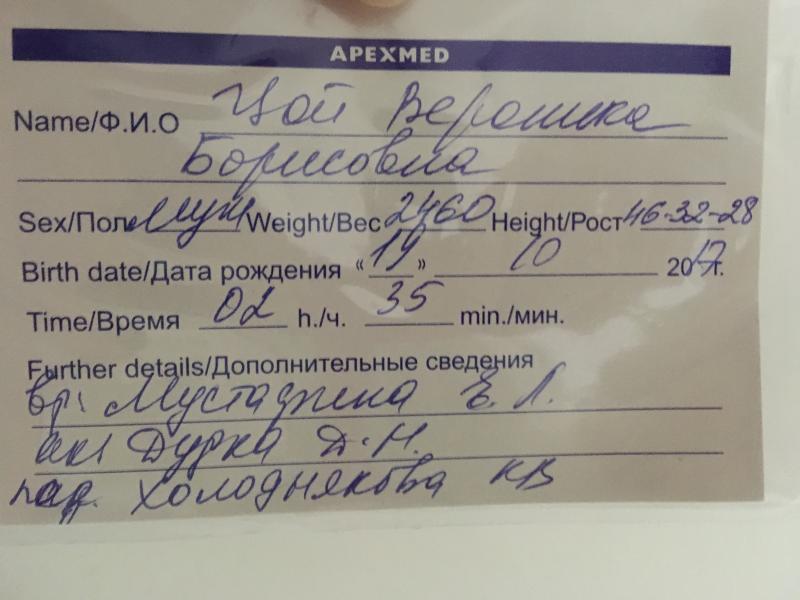 APEXMED
Name/Ф.И.О Цой Вероника
Борисовна
Sex/Пол муж Weight/Вес 2460 Height/Рост 46-32-28
Birth date/Дата рождения «19» 10 2017г.
Time/Время 02 h./ч. 35 min./мин.
Further details/Дополнительные сведения
вр: Мустафина Е. Л.
ак: Дурка Д. Н.
пед. Холоднякова КВ